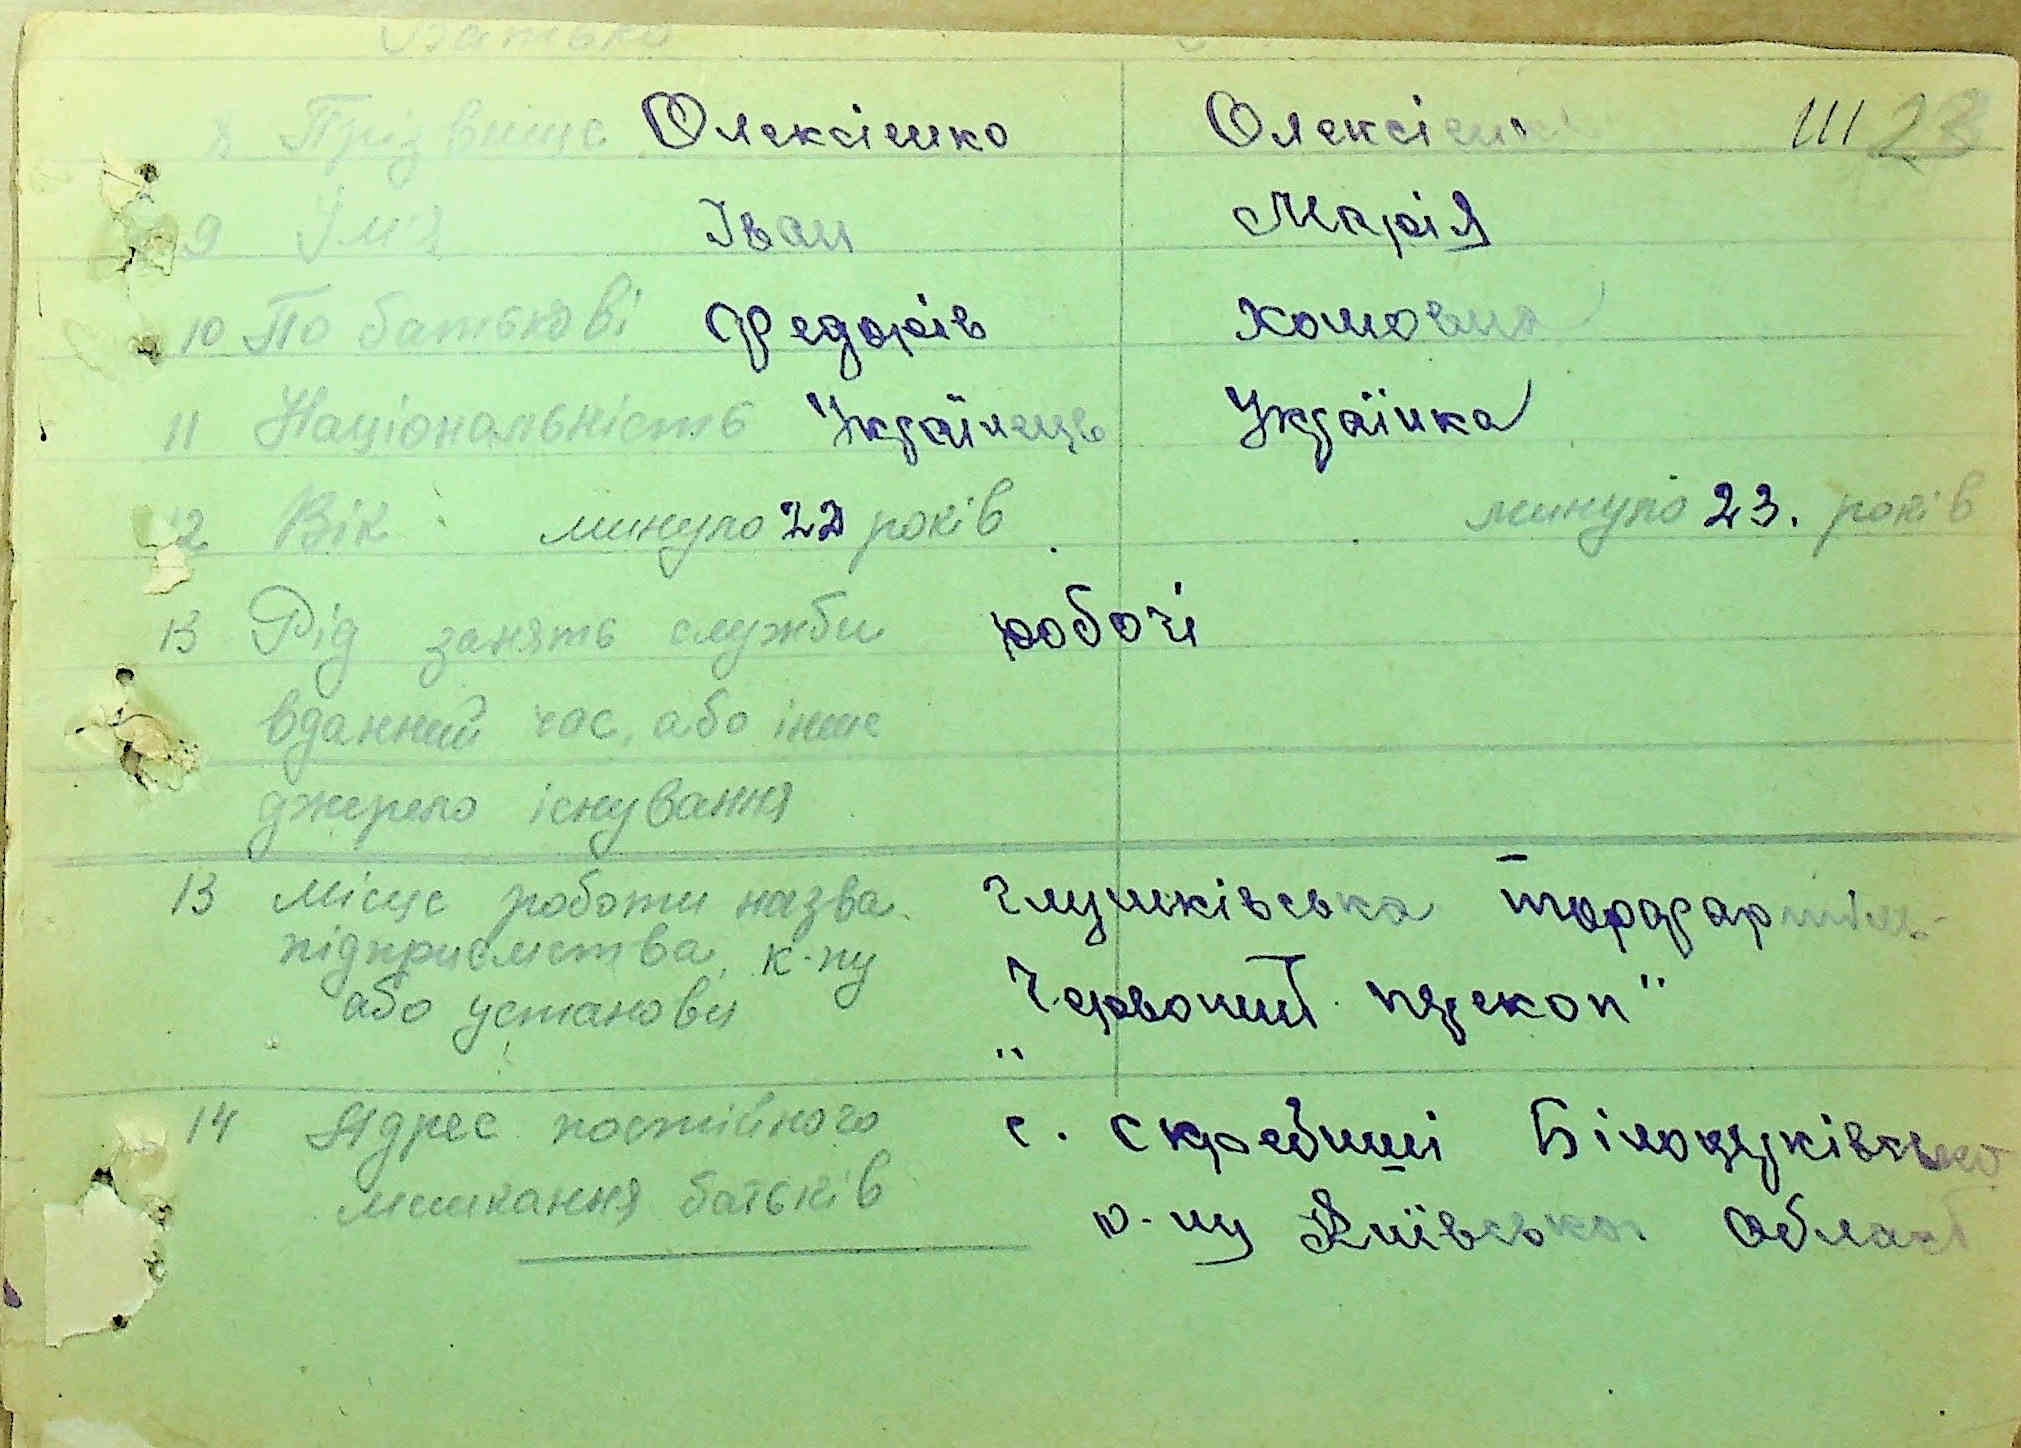 Батько
8 Прізвище Олексієнко Олексієнко Ш 23
9 Ім'я Іван Марія
10 По батькові Федорів Хомовна
11 Національність Українець Українка
12 Вік минуло 22 років минуло 23. років
13 Рід занять служби робочі
вданний час, або інше
джерело існування
13 місце роботи назва Глушківська торфартіль
підприємства, к-пу „Червоний перекоп"
або установи
14 Адрес постійного с. Скребиші Білоцерківсько
мешкання батьків р-ну Київської област